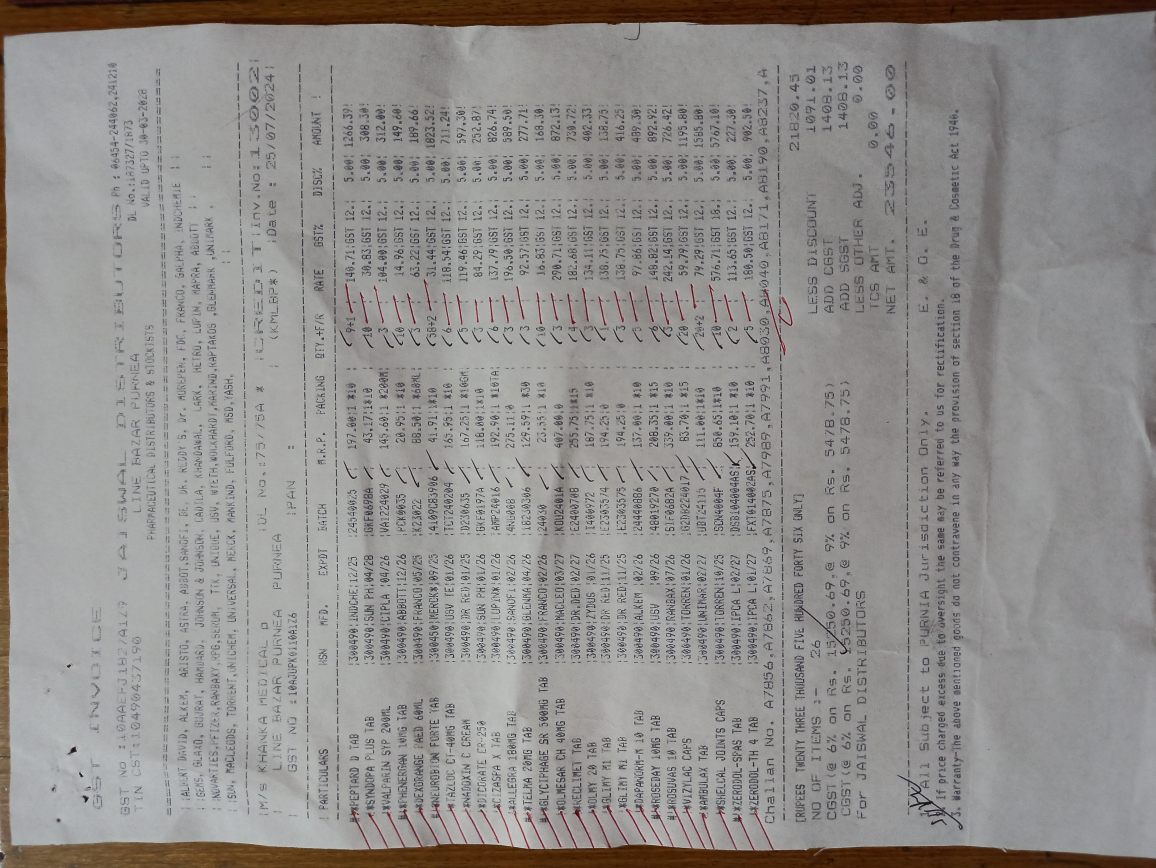 GST INVOICE
GST NO :10AAEFJ1827A1Z9 JAISWAL DISTRIBUTORS Ph : 06454-244062,241210
TIN CST:10490437190 LINE BAZAR PURNEA DL No.:187327/1873
PHARMACEUTICAL DISTRIBUTORS & STOCKISTS VALID UPTO 30-03-2028
:ALBERT DAVID, ALKEM, ARISTO, ASTRA, ABBOT,SANOFI, BE, DR. REDDY'S, Dr. MOREPEN, FDC, FRANCO,GALPHA, INDCHEMIE ::
GLAXO, GUJRAT, HAMDARD, JOHNSON & JOHNSON, CADILA, KHANDAWAL, LARK, HETRO, LUPIN, MAPRA, ABBOTT ::
:NOVARTIES,PFIZER,RANBAXY,RPG,SERUM, TTK, UNIQUE, USV, WYETH,WOCKHARD,MAKIND,RAPTAKOS ,GLENMARK ,UNIMARK ,
:SUN, MACLEODS, TORRENT,UNICHEM, UNIVERSAL, MERCK, MANKIND, FULFORD, MSD,YASH, ::
:M/s KHANKA MEDICAL D :DL No.:75/75A * :CREDIT:Inv.No:13002:
: LINE BAZAR PURNEA PURNEA : (KMLBP*) :Date : 25/07/2024:
: GST NO :10AJUPK0110A1Z6 :PAN :
: PARTICULARS HSN MFD. EXPDT BATCH M.R.P. PACKING QTY.+F/R RATE GST% DISC% AMOUNT !
#*PEPTARD D TAB :300490:INDCHE:12/25 :24540025 197.00:1 *10 : 9+1 : 140.71:GST 12.: 5.00: 1266.39!
!*SYNDOPA PLUS TAB :300490:SUN PH:04/28 :GKF0698A 43.17:1*10 : 10 : 30.83:GST 12.: 5.00: 308.30!
!*VALPARIN SYP 200ML :300490:CIPLA :04/26 :VAI224029 145.60:1 *200M: 3 : 104.00:GST 12.: 5.00: 312.00!
#*PHENERGAN 10MG TAB :300490:ABBOTT:12/26 :PCK0035 20.95:1 *10 : 10 : 14.96:GST 12.: 5.00: 149.60!
#*DEXORANGE PAED 60ML :300490:FRANCO:05/25 :K23022 88.50:1 *60ML : 3 : 63.22:GST 12.: 5.00: 189.66!
#*NEUROBION FORTE TAB :300450:MERCK*:09/25 :4109C83906 41.91:1*10 : 58+2 : 31.44:GST 12.: 5.00: 1823.52!
!*TAZLOC CT-40MG TAB :300490:USV TE:01/26 :TCT240204 165.95:1 *10 : 6 : 118.54:GST 12.: 5.00: 711.24!
!*NADOXIN C CREAM :300490:DR RED:01/25 :D230635 167.25:1 *10GM : 5 : 119.46:GST 12.: 5.00: 597.30!
!*DICORATE ER-250 :300490:SUN PH:01/26 :GKF0197A 118.00:1*10 : 3 : 84.29:GST 12.: 5.00: 252.87!
!*CIZASPA X TAB :300490:LUPIN*:01/26 :RMP24016 192.90:1 *10TA: 6 : 137.79:GST 12.: 5.00: 826.74!
!*ALLEGRA 180MG TAB :300490:SANOFI:02/26 :4NG008 275.11:0 : 3 : 196.50:GST 12.: 5.00: 589.50!
#*TELMA 20MG TAB :300490:GLENMA:04/26 :18230306 129.59:1 *30 : 3 : 92.57:GST 12.: 5.00: 277.71!
#*GLYCIPHAGE SR 500MG TAB :300490:FRANCO:02/26 :24030 23.55:1 *10 : 10 : 16.83:GST 12.: 5.00: 168.30!
#*OLMESAR CH 40MG TAB :300490:MACLEO:03/27 :KOU2401A 407.00:0 : 3 : 290.71:GST 12.: 5.00: 872.13!
#*RECLIMET TAB :300490:DR.DED:02/27 :E240070B 255.75:1*15 : 4 : 182.68:GST 12.: 5.00: 730.72!
!*OLMY 20 TAB :300490:ZYDUS :01/26 :I400972 187.75:1 *10 : 3 : 134.11:GST 12.: 5.00: 402.33!
!*GLIMY M1 TAB :300490:DR RED:11/25 :E2303574 194.25:0 : 1 : 138.75:GST 12.: 5.00: 138.75!
!*GLIMY M1 TAB :300490:DR RED:11/25 :E2303575 194.25:0 : 3 : 138.75:GST 12.: 5.00: 416.25!
!*DAPANORM-M 10 TAB :300490:ALKEM :02/26 :24440886 137.00:1 *10 : 5 : 97.86:GST 12.: 5.00: 489.30!
#*ROSEDAY 10MG TAB :300490:USV :09/26 :48019270 208.35:1 *15 : 6 : 148.82:GST 12.: 5.00: 892.92!
#*ROSUVAS 10 TAB :300490:RANBAX:07/26 :SIF0682A 339.00:1 *10 : 3 : 242.14:GST 12.: 5.00: 726.42!
!*VIZYLAC CAPS :300490:TORREN:01/26 :G2D0224017 83.70:1 *15 : 20 : 59.79:GST 12.: 5.00: 1195.80!
!*AMBULAX TAB :300490:UNIMAR:02/27 :UBT24115 111.00:1*10 : 20+2 : 79.29:GST 12.: 5.00: 1585.80!
!*SHELCAL JOINTS CAPS :300490:TORREN:10/25 :SCN4004F 850.65:1*10 : 10 : 576.71:GST 18.: 5.00: 5767.10!
#!*ZERODOL-SPAS TAB :300490:IPCA L:02/27 :DSB104004AS: 159.10:1 *10 : 2 : 113.65:GST 12.: 5.00: 227.30!
!*ZERODOL-TH 4 TAB :300490:IPCA L:01/27 :FXT014002AS: 252.70:1 *10 : 5 : 180.50:GST 12.: 5.00: 902.50!
Challan No. A7856,A7862,A7869,A7875,A7989,A7991,A8030,A8040,A8171,A8190,A9237,A
21820.45
[RUPEES TWENTY THREE THOUSAND FIVE HUNDRED FORTY SIX ONLY] LESS DISCOUNT 1091.01
NO OF ITEMS :- 26 ADD CGST 1408.13
CGST(@ 6% on Rs. 15250.69,@ 9% on Rs. 5478.75) ADD SGST 1408.13
CGST(@ 6% on Rs. 15250.69,@ 9% on Rs. 5478.75) LESS OTHER ADJ. 0.00
For JAISWAL DISTRIBUTORS TCS AMT 0.00
NET AMT. 23546.00
All Subject to PURNIA Jurisdiction Only. E. & O. E.
If price charged excess due to oversight the same may be referred to us for rectification.
3. Warranty-The above mentioned goods do not contravene in any way the provision of section 18 of the Drug & Cosmetic Act 1940.